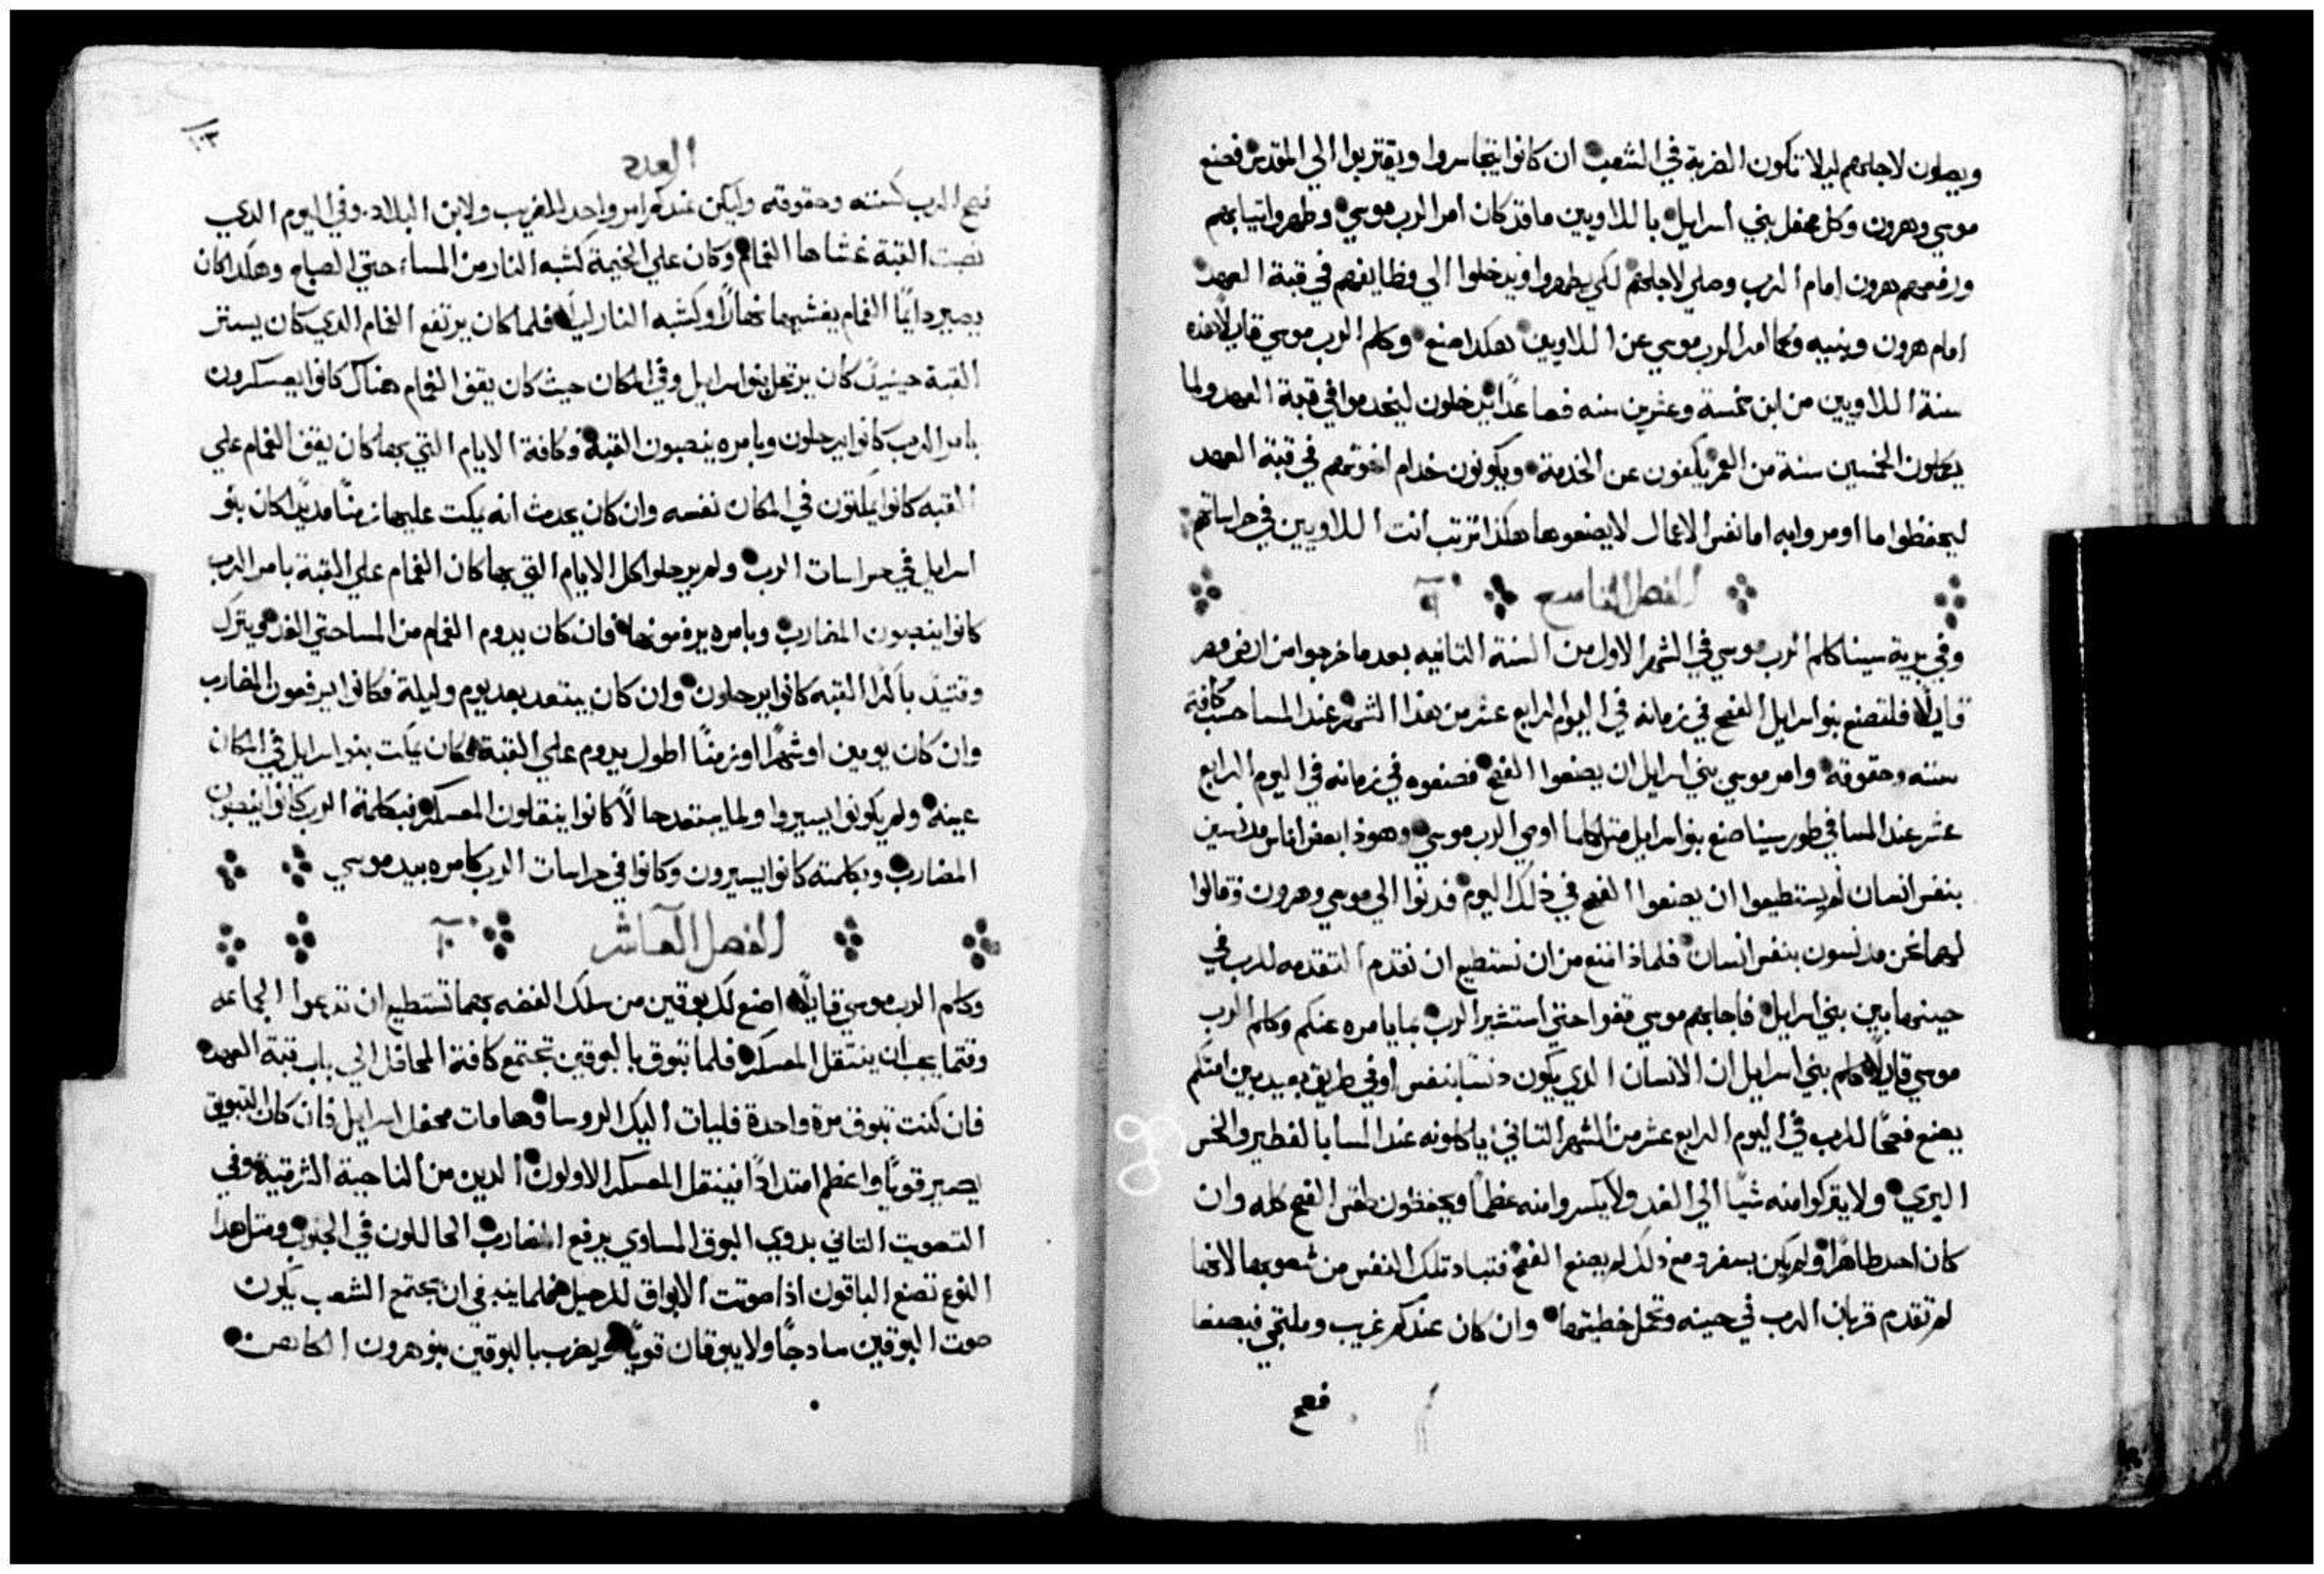 ويصلون لاجلهم ليلا تكون الضربة في الشعب ان كانوا يتجاسروا ويقتربوا الي المقدس فصنع
موسي وهرون وكل محفل بني اسرايل باللاويين ما قد كان امر الرب موسي وطهروا تيابهم
ورفعهم هرون امام الرب وصلي لاجلهم لكي يطهروا ويدخلوا الي وظايفهم في قبة العهد
امام هرون وبنيه وكما امر الرب موسي عن اللاويين هكدا صنع وكلم الرب موسي قايلا هذه
سنة اللاويين من ابن خمسة وعشرين سنه فصاعدًا يدخلون ليخدموا في قبة العهد ولما
يكملون الخمسين سنة من العمر يكفون عن الخدمة ويكونون خدام اخوتهم في قبة العهد
ليحفظوا ما اومروا به اما نفس الاعمال لا يصنعوها هكذا ترتب انت اللاويين في حراساتهم
الفصل التاسع ٩
وفي برية سينا كلم الرب موسي في الشهر الاول من السنة التانيه بعد ما خرجوا من ارض مصر
قايلا فليصنع بنو اسرايل الفصح في زمانه في اليوم الرابع عشر من هذا الشهر عند المسا حسب كافة
سننه وحقوقه وامر موسي بني اسرايل ان يصنعوا الفصح فصنعوه في زمانه في اليوم الرابع
عشر عند المسا في طور سينا صنع بنو اسرايل متل كلما اوصي الرب موسي وهوذا بعض اناس مدنسين
بنفس انسان لم يستطيعوا ان يصنعوا الفصح في ذلك اليوم فدنوا الي موسي وهرون وقالوا
لهما نحن مدنسون بنفس انسان فلماذا نمنع من ان نستطيع ان نقدم التقدمه للرب في
حينها بين بني اسرايل فاجابهم موسي قفوا حتي استشير الرب بما يامره عنكم وكلم الرب
موسي قايلا كلم بني اسرايل ان الانسان الدي يكون دنسًا بنفس او في طريق بعيد بين امتكم
يصنع فصحًا للرب في اليوم الرابع عشر من الشهر التاني ياكلونه عند المسا بالفطير والخس
البري ولا يتركوا منه شيًا الي الغد ولا يكسروا منه عظمًا ويحفظون طقس الفصح كله وان
كان احد طاهرًا ولم يكن بسفر ومع دلك لم يصنع الفصح فتباد تلك النفس من شعوبها لانها
لم تقدم قربان الرب في حينه وتحمل خطيتها وان كان عندكم غريب وملتجي فيصنعا
فصح
١٠٣
العدد
فصح الرب كسننه وحقوقه وليكن عندكم امر واحد للغريب ولابن البلاد وفي اليوم الدي
نصبت القبة غشاها الغمام وكان علي الخيمة كشبه النار من المساء حتي الصباح وهكدا كان
يصير دايمًا الغمام يغشيها نهارًا وكشبه النار ليلا فلما كان يرتفع الغمام الدي كان يستر
القبة حينيد كان يرتحل بنو اسرايل وفي المكان حيث كان يقف الغمام هناك كانوا يعسكرون
بامر الرب كانوا يرحلون وبامره ينصبون القبة وكافة الايام التي بها كان يقف الغمام علي
القبه كانوا يمكتون في المكان نفسه وان كان يحدث انه يمكت عليها زمنًا مديدًا كان بنو
اسرايل في حراسات الرب ولم يرحلوا كل الايام التي بها كان الغمام علي القبة بامر الرب
كانوا ينصبون المضارب وبامره يرفعونها فان كان يدوم الغمام من المسا حتي الغد ويترك
وقتيد باكرًا القبه كانوا يرحلون وان كان يبتعد بعد يوم وليلة فكانوا يرفعون المضارب
وان كان يومين او شهرًا او زمنًا اطول يدوم علي القبة فكان يمكت بنو اسرايل في المكان
عينه ولم يكونوا يسيروا ولما يبتعد حالًا كانوا ينقلون المعسكر فبكلمة الرب كانوا ينصبون
المضارب وبكلمته كانوا يسيرون وكانوا في حراسات الرب كامره بيد موسي
الفصل العاشر ١٠
وكلم الرب موسي قايلا اصنع لك بوقين من سلك الفضه بهما تستطيع ان تدعوا الجماعه
وقتما يجب ان ينتقل المعسكر فلما تبوق بالبوقين تجتمع كافة المحافل الي باب قبة العهد
فان كنت تبوق مرة واحدة فليات اليك الروسا وهامات محفل اسرايل فان كان التبويق
يصير قويًا واعظم امتدادًا فينقل المعسكر الاولون الدين من الناحية الشرقية وفي
التصويت التاني بدوي البوق المساوي يرفع المضارب الحاللون في الجنوب ومتل هدا
النوع تصنع الباقون اذا صوتت الابواق للرحيل فلما ينبغي ان يجتمع الشعب يكون
صوت البوقين سادجًا ولا يبوقان قويًا ويضرب بالبوقين بنو هرون الكاهن